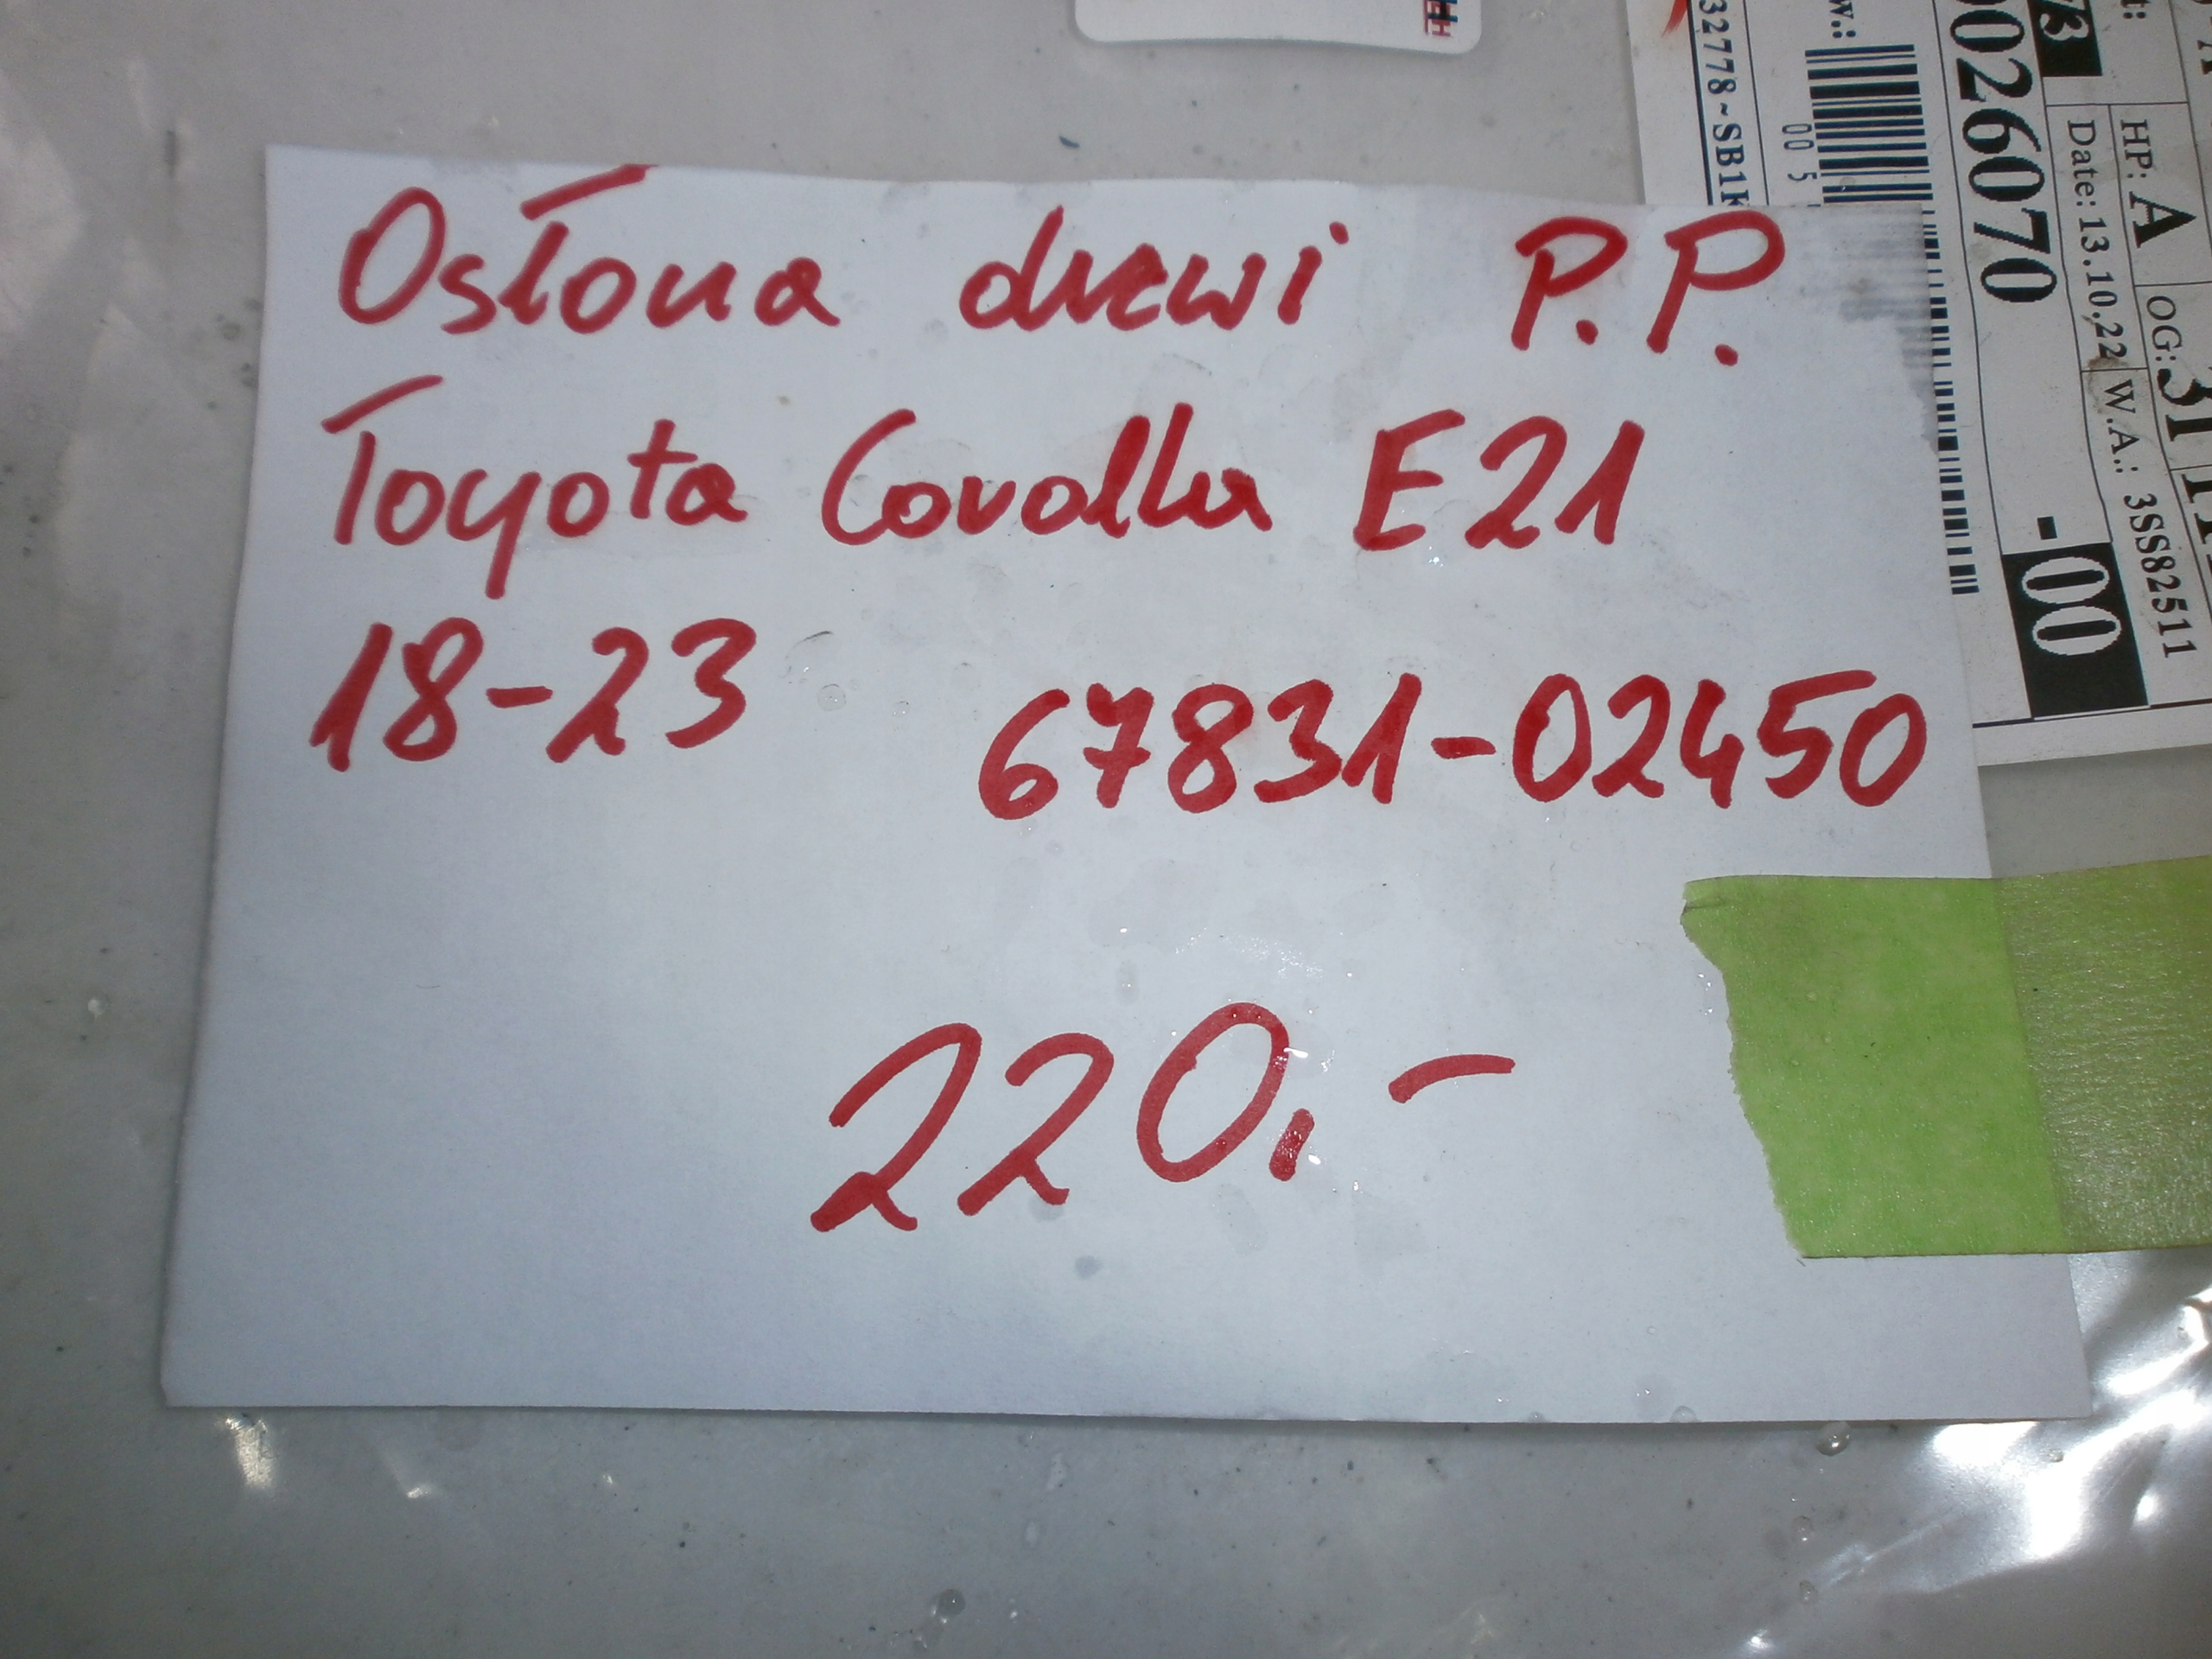 Osłona drzwi P.P.
Toyota Corolla E21
18-23 67831-02450
220,-
32778~SB1K
w.:
00 5
0026070
-00
73
t:
HP: A
OG:
Date: 13.10,22
W.A.: 3SS82511